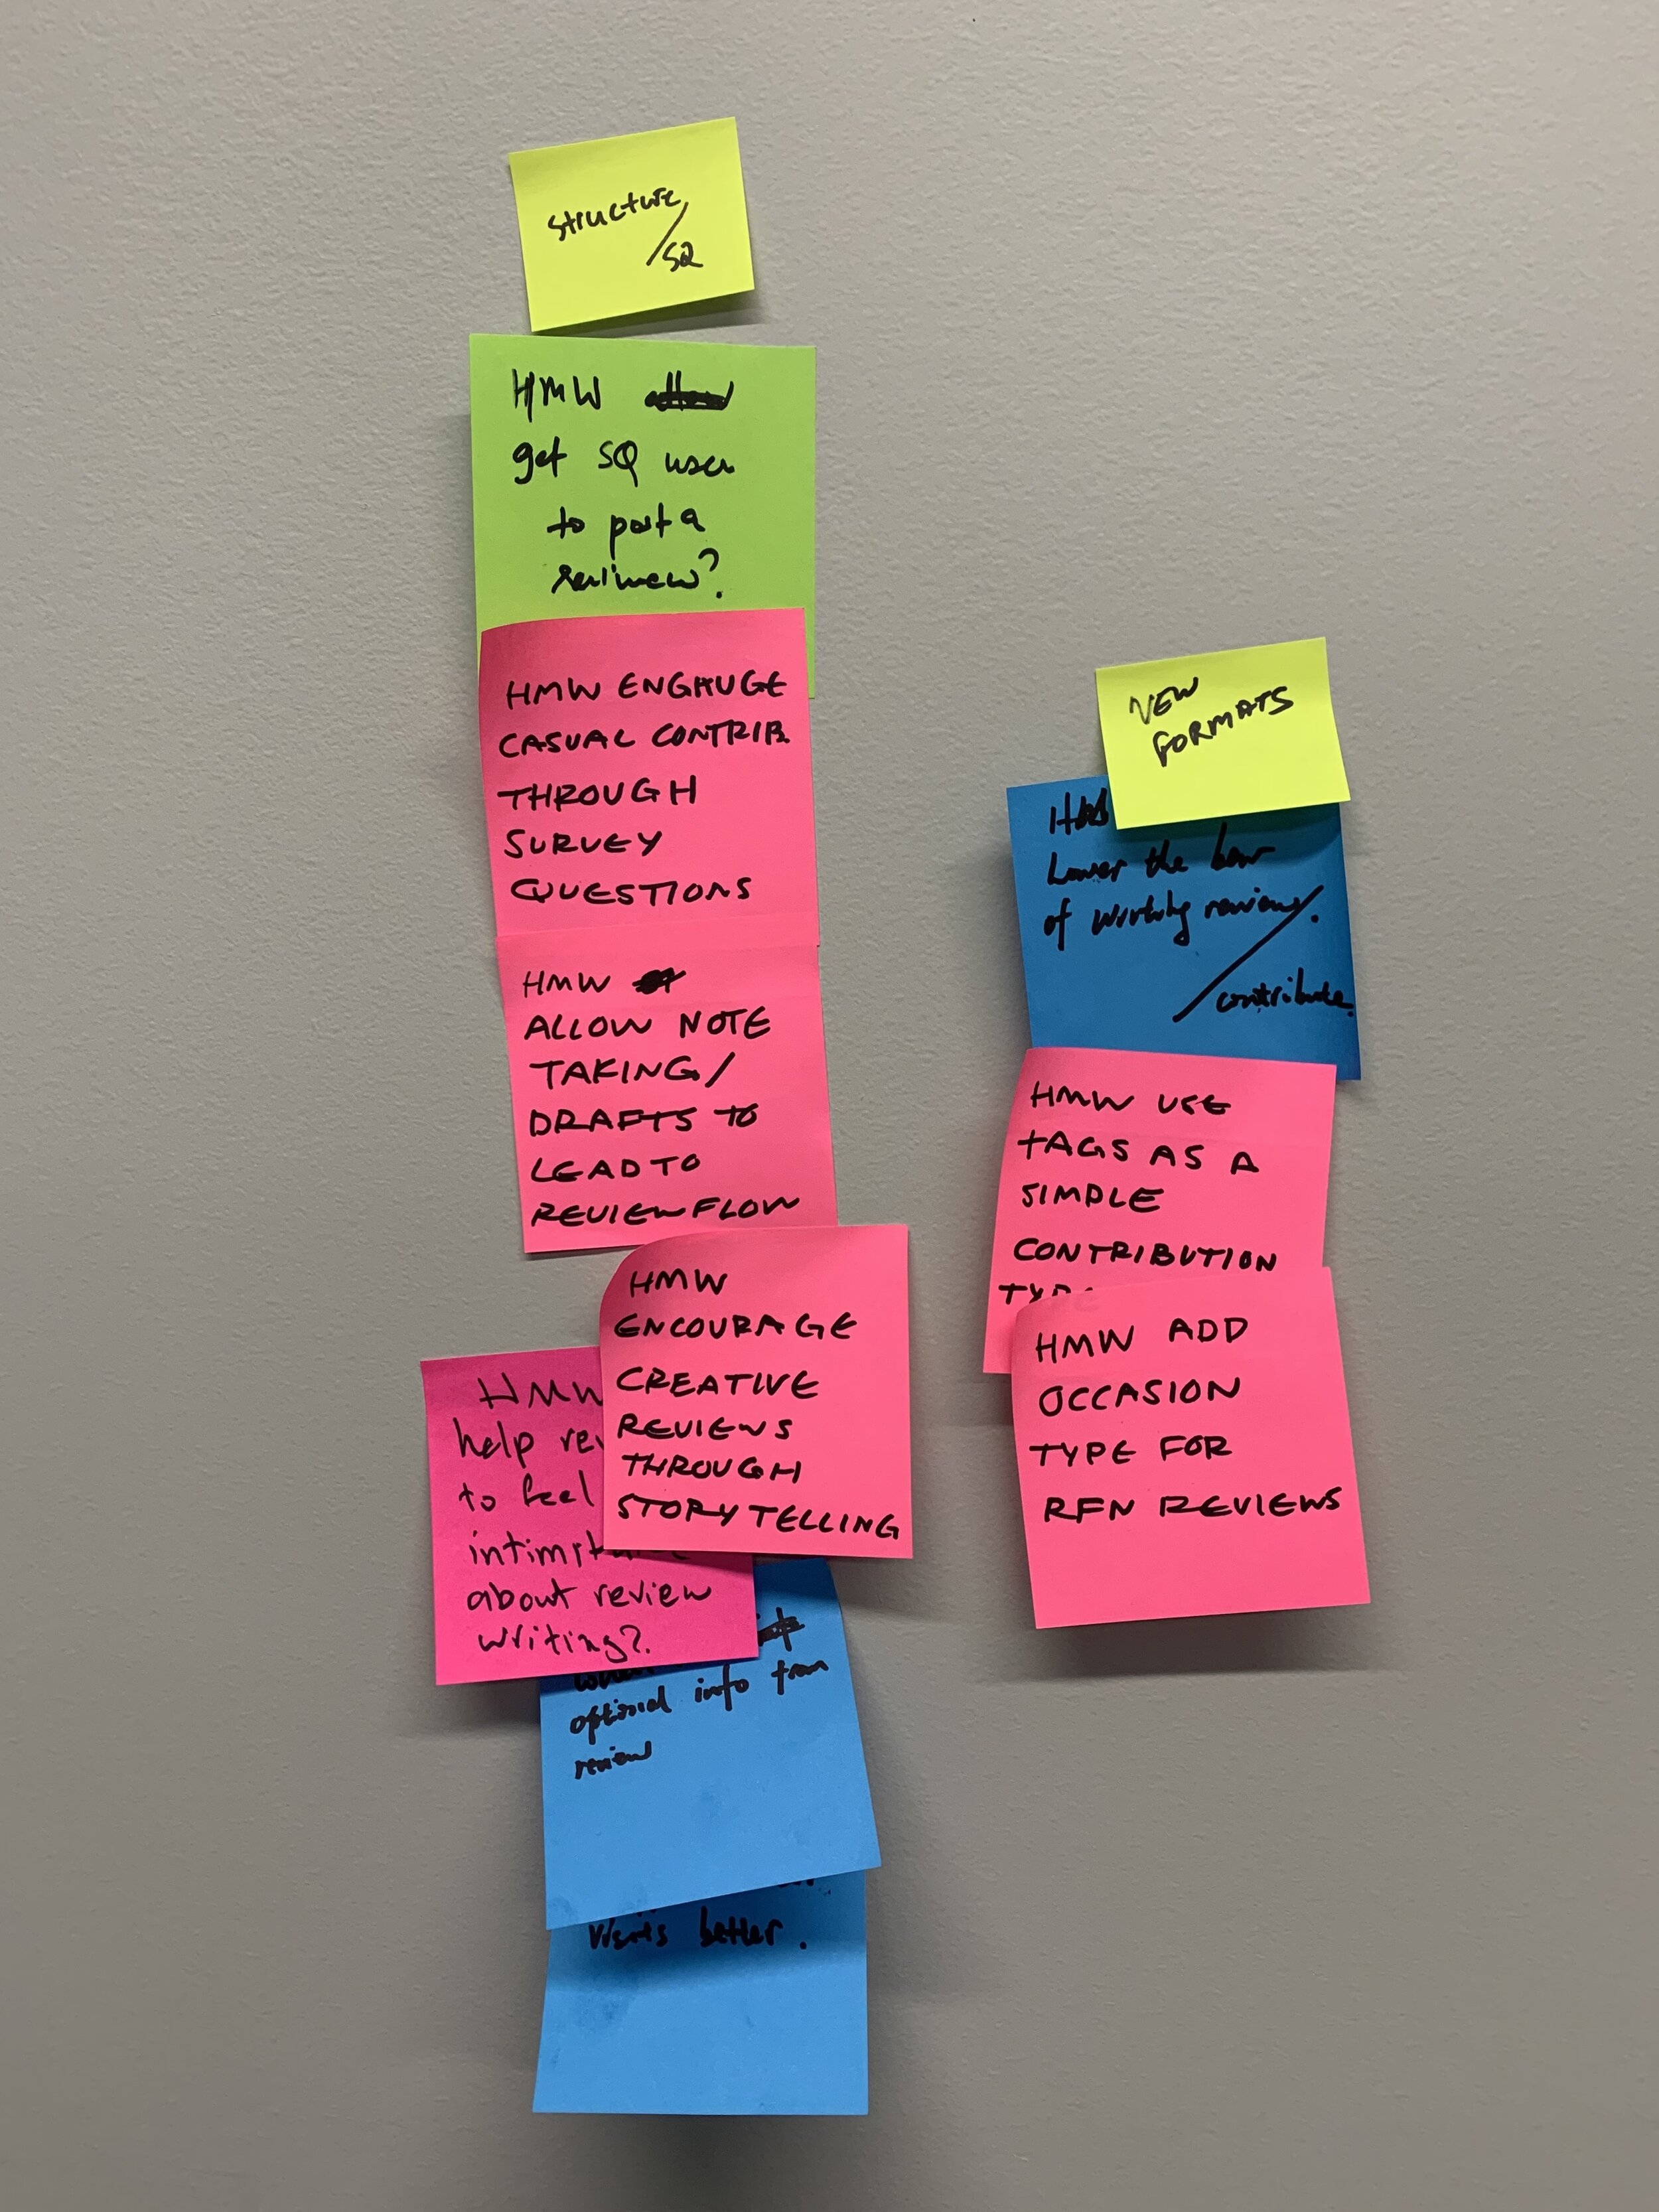 structure
/SQ
HMW
get SQ user
to post a
review?
HMW ENGHUGE
CASUAL CONTRIB.
THROUGH
SURVEY
QUESTIONS
HMW
ALLOW NOTE
TAKING/
DRAFTS TO
LEAD TO
REVIEW FLOW
HMW
ENCOURAGE
CREATIVE
REVIEWS
THROUGH
STORYTELLING
HMW
help
to feel
about review
writing?
optional info from
review
better.
NEW
FORMATS
Lower the bar
of writing reviews.
/contribute.
HMW USE
TAGS AS A
SIMPLE
CONTRIBUTION
TYPE
HMW ADD
OCCASION
TYPE FOR
RFN REVIEWS